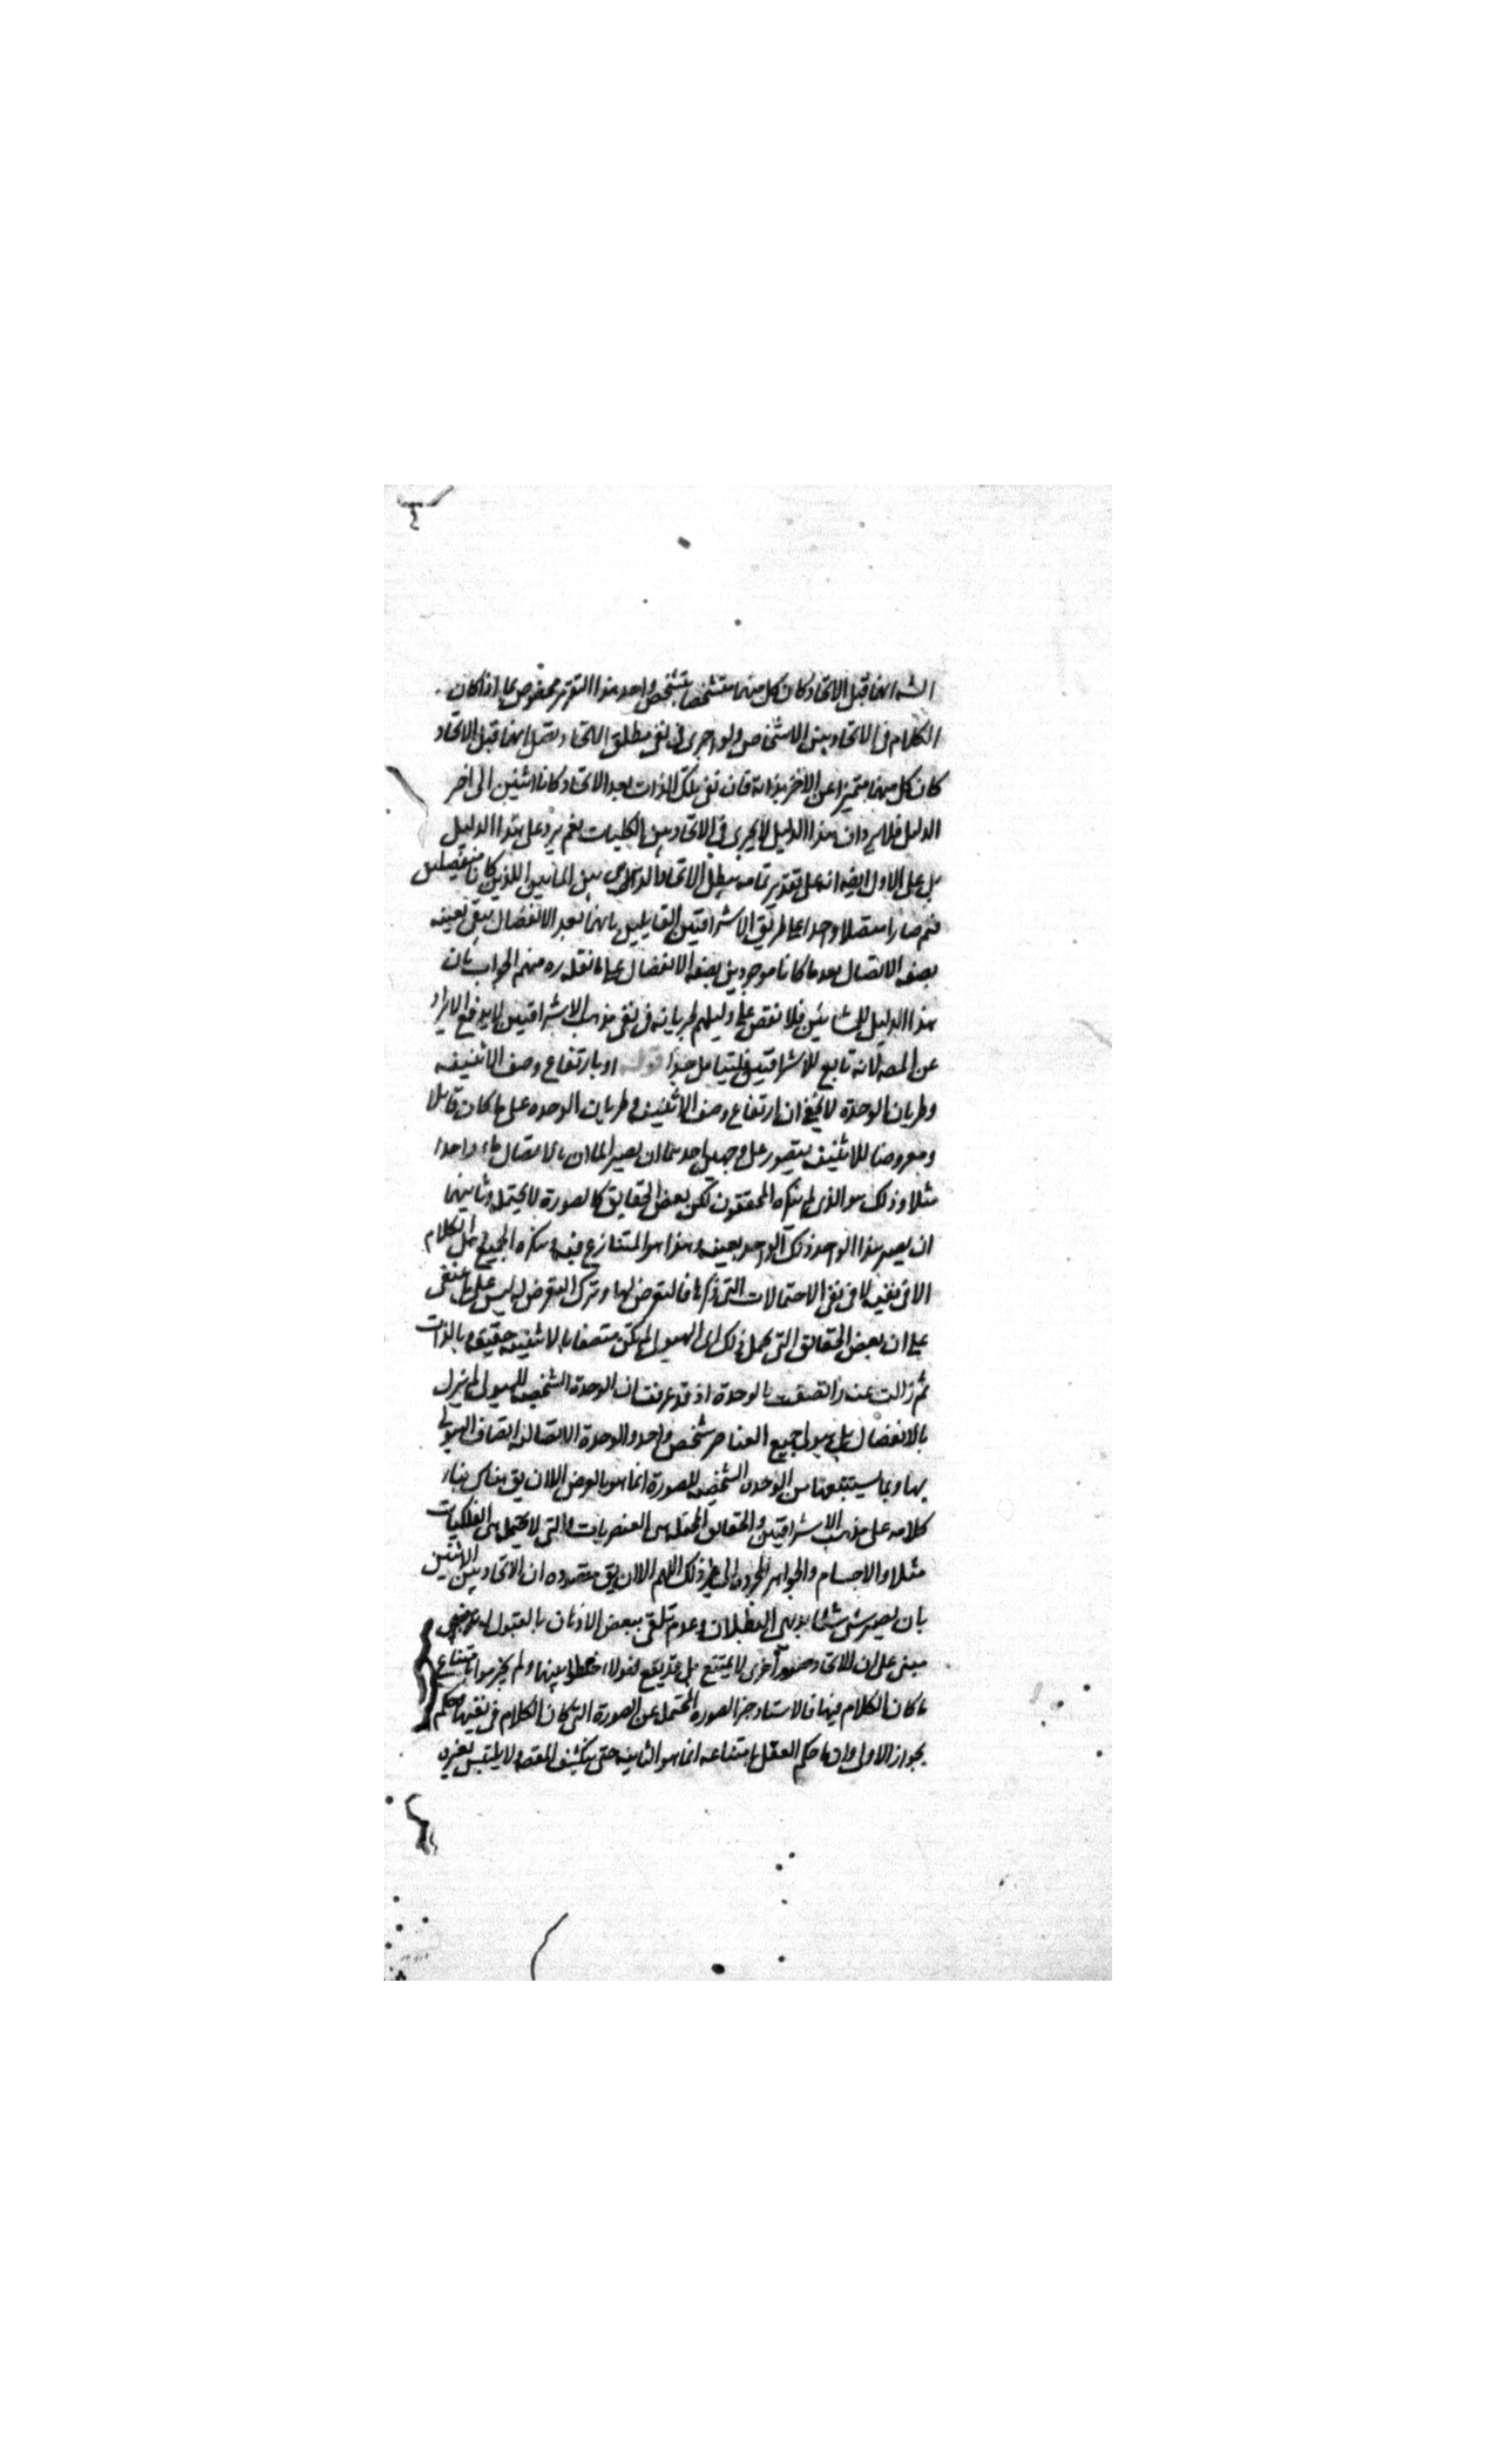 انهما قبل الاتحاد كان كل منهما متشخصا بتشخص واحد هذا التقرير مخصوص بما اذا كان
الكلام فى الاتحاد بين الاشخاص ولو اجرى فى نفى مطلق الاتحاد انهما قبل الاتحاد
كان كل منهما متميزا عن الاخر بذاته فان بقى تلك الذات بعد الاتحاد كانا اثنين الى اخر
الدليل فلا يرد ان هذا الدليل لا يجرى فى الاتحاد بين الكليات نعم يرد على هذا الدليل
بل على الاول ايضا انه على تقدير تمامه يبطل الاتحاد بين المائين اللذين كانا منفصلين
ثم صارا متصلا واحدا على طريق الاشراقيين القايلين بانهما بعد الانفصال يبقى بعينه
بصفة الاتصال بعد ما كانا موجودين بصفة الانفصال على ما نقله ره منهم الجواب بان
هذا الدليل للمشائين فلا نقض على دليلهم لجريانه فى نفى مذهب الاشراقيين لا يدفع الايراد
عن المصه لانه تابع للاشراقيين فليتامل جيدا قوله او بارتفاع وصف الاثنينية
وطريان الوحدة لا يخفى ان ارتفاع وصف الاثنينية وطريان الوحده على ما كان قابلا
ومعروضا للاثنينية يتصور على وجهين احدهما ان يصير الماان بالاتصال ماء واحدا
مثلا وذلك هو الذى لم ينكره المحققون لكن بعض الحقايق كالصورة لا يحتمله وثانيهما
ان يصير هذا الواحد ذلك الواحد بعينه وهذا هو المتنازع فيه وينكره الجميع بل الكلام
الا فى نفيه لا فى نفى الاحتمالات التى ذكرها فالتعرض لها وترك التعرض له ليس على ما ينبغى
على ان بعض الحقائق التى يحمل ذلك اى الهيولى لم يكن متصفا بالاثنينية حقيقة وبالذات
ثم زالت عنه واتصفت بالوحدة اذ قد عرفت ان الوحدة الشخصية للهيولى لم يزل
بالانفصال بل هيولى جميع العناصر شخص واحد والوحدة الاتصالية اتصاف الهيولى
بها وبما يستتبعها من الوحده الشخصية للصورة انما هو بالعرض الا ان يق هناك بناء
كلامه على مذهب الاشراقيين والحقائق المحتملة هى العنصريات والتى لا يحتمل هى الفلكيات
مثلا والاجسام والجواهر المجرده الى غير ذلك اللهم الا ان يق مقصوده ان الاتحاد بين الاثنين
بان يصير شئ شيئا بديهى البطلان وعدم تلقى بعض الاذهان بالقبول له
مبنى على ان للاتحاد صورا اخرى لا يمتنع بل قد يقع فهولاء خلطوا بينها ولم يجزموا بامتناع
ما كان الكلام فيها فالاستاد الصورة المحتمل عن الصورة التى كان الكلام فى نفيها وحكم
بجواز الاول وان ما حكم العقل بامتناعه انما هو الثانية حتى ينكشف المقصه ولا يلتبس بغيره